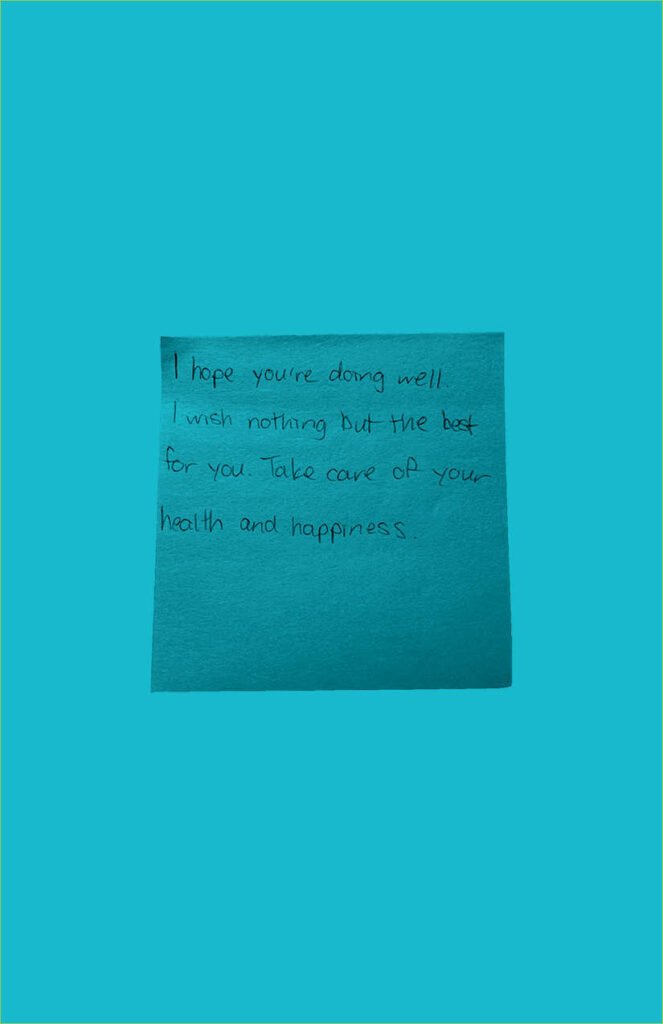 I hope you're doing well.
I wish nothing but the best
for you. Take care of your
health and happiness.